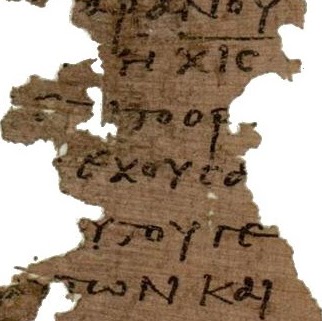 ΑΡΑΝΟΥ
Η ΧΙϹ
ΤΟΟΡ
ΕΧΟΥϹΑ
ΥΤΟΥΓΕ
ΤΩΝ ΚΑΙ